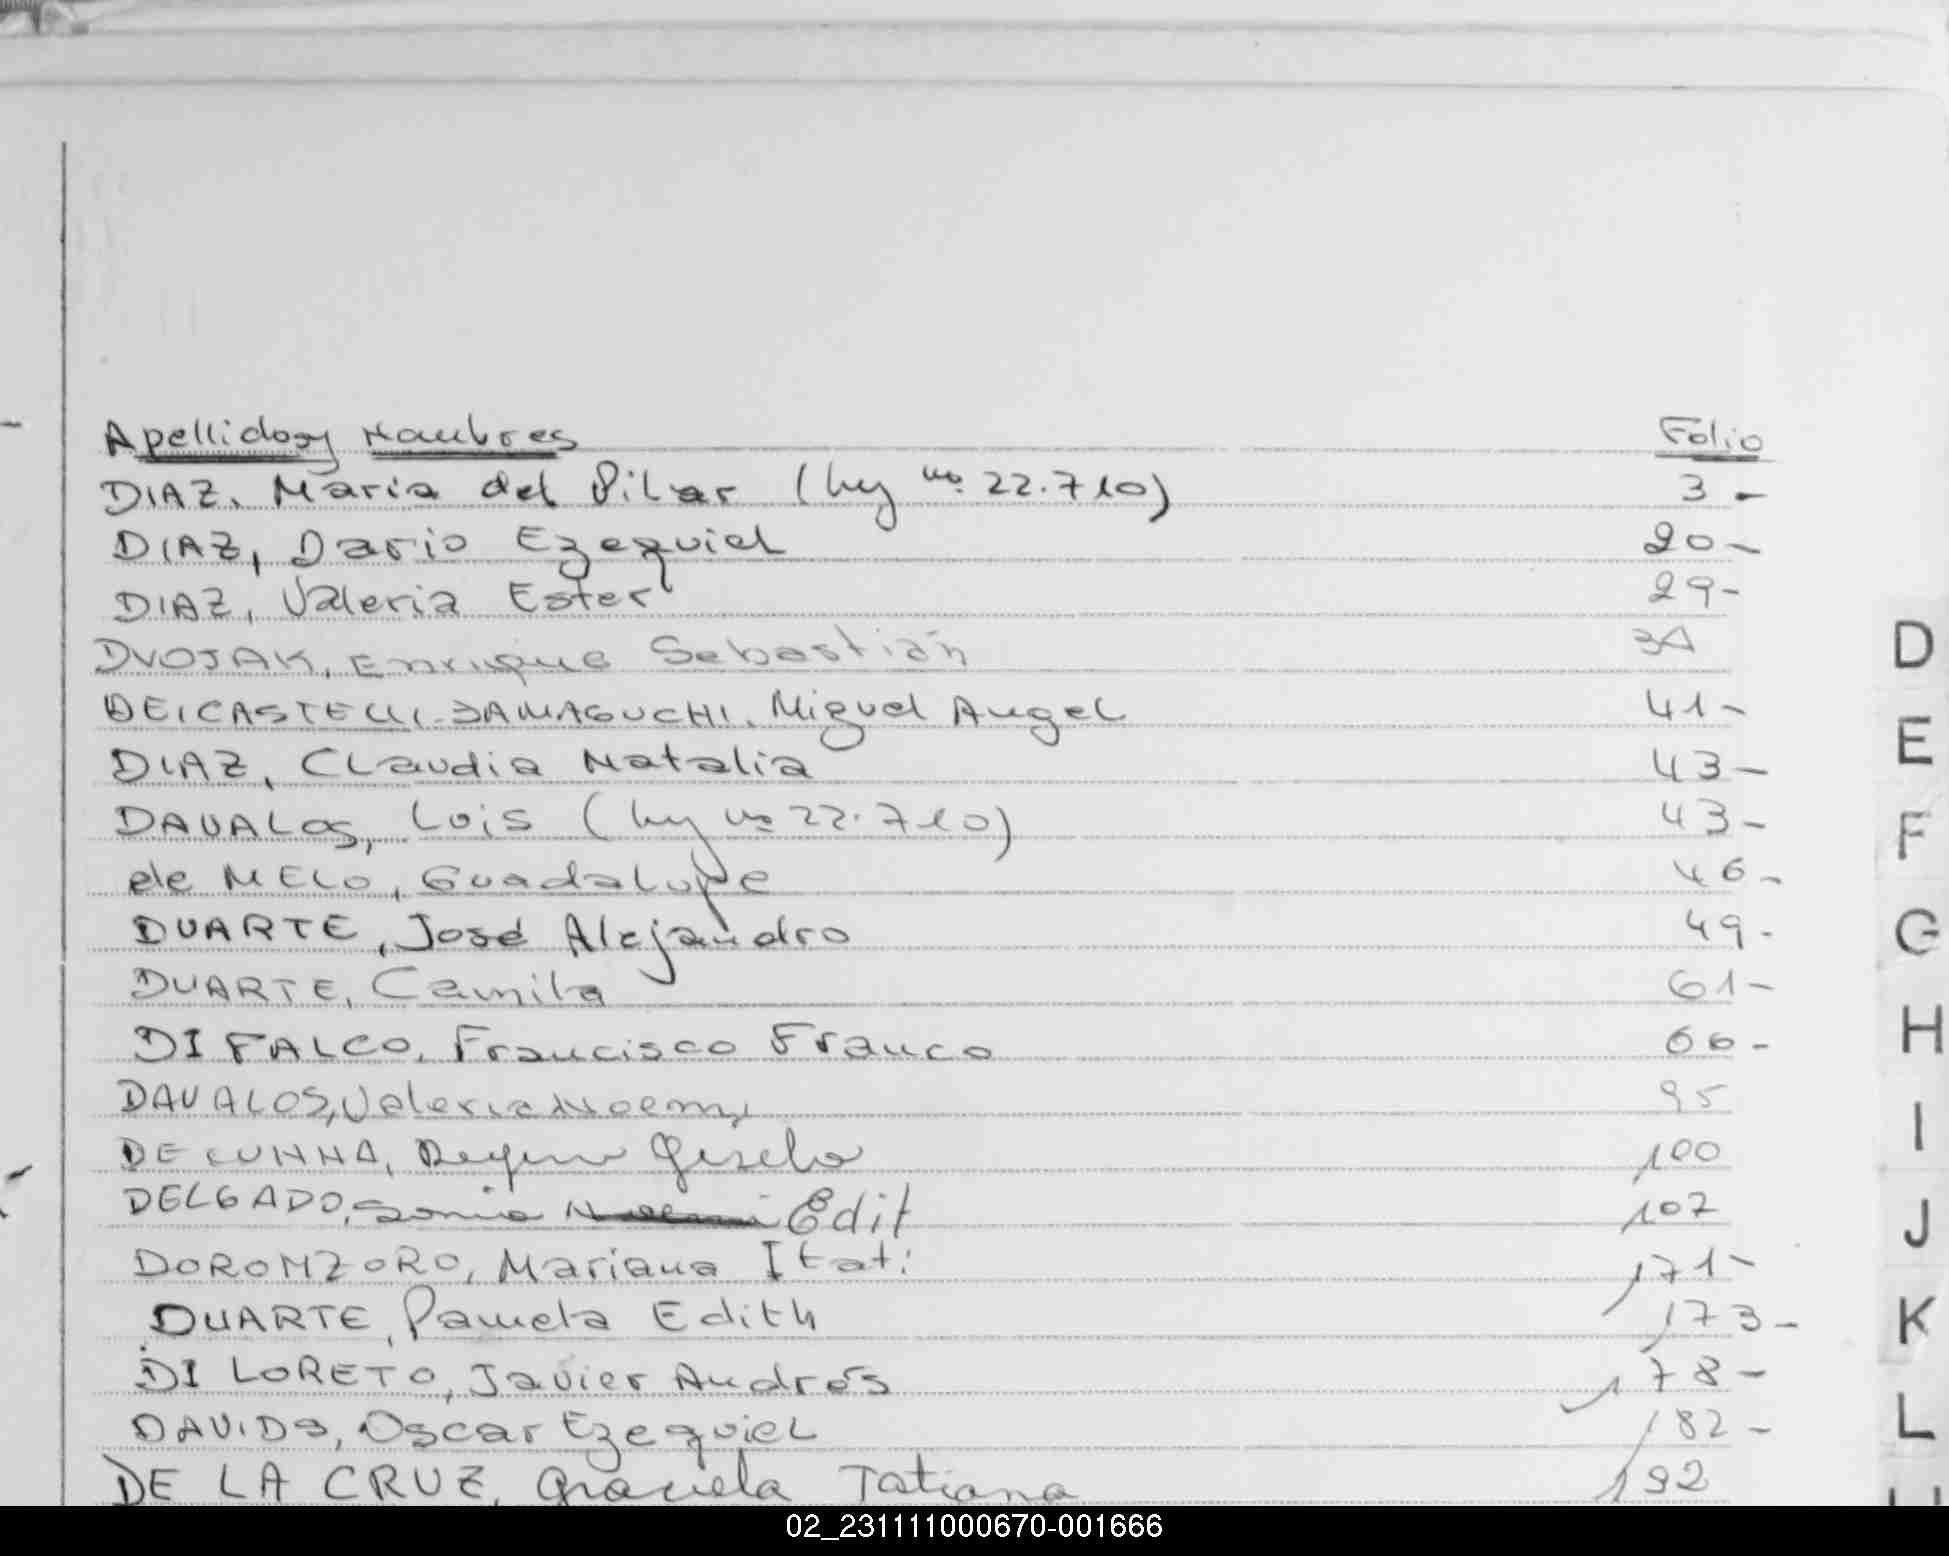 Apellidos y Nombres Folio
DIAZ, Maria del Pilar (ley nº 22.710) 3 -
DIAZ, Dario Ezequiel 20 -
DIAZ, Valeria Ester 29 -
DVOJAK, Enrique Sebastián
DEICASTELLI-JAMAGUCHI, Miguel Angel 41 -
DIAZ, Claudia Natalia 43 -
DAVALOS, Luis (ley nº 22.710) 43 -
de MELO, Guadalupe 46 -
DUARTE, José Alejandro 49 -
DUARTE, Camila 61 -
DI FALCO, Francisco Franco 66 -
DAVALOS, Valeria Noemi 95
DE CUNHA, Gisela 100
DELGADO, Sonia Noemi Edit 107
DORONZORO, Mariana Itati 171 -
DUARTE, Pamela Edith 173 -
DI LORETO, Javier Andrés 178 -
DAVIDS, Oscar Ezequiel 182 -
DE LA CRUZ, Graciela Tatiana 192
D
E
F
G
H
I
J
K
L
02_231111000670-001666